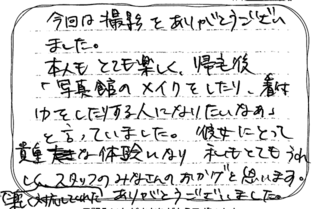 今回は撮影をありがとうござい
ました。
本人もとても楽しく、帰宅後
「写真館のメイクをしたり、着付
けをしたりする人になりたいなぁ」
と言っていました。彼女にとって
貴重な体験になり 私もとてもうれ
しく、スタッフのみなさんのおかげと思います。
楽しく対応してくれた ありがとうございました。